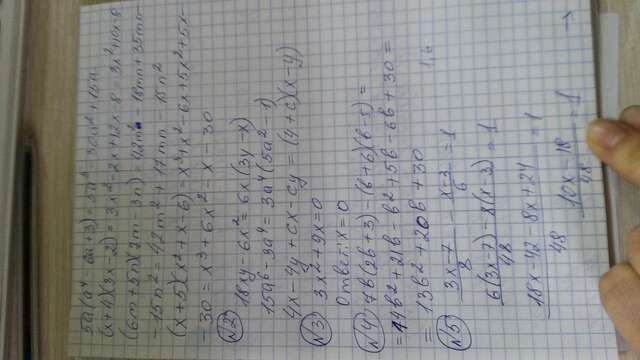 5a(a⁴ - 6a + 3) = 5a⁵ - 30a² + 15a
(x+4)(3x-2) = 3x² - 2x + 12x - 8 = 3x² + 10x - 8
(6m+5n)(7m-3n) = 42m² - 18mn + 35mn -
- 15n² = 42m² + 17mn - 15n²
(x+5)(x²+x-6) = x³ + x² - 6x + 5x² + 5x -
- 30 = x³ + 6x² - x - 30
№2 18xy - 6x² = 6x(3y - x)
15a⁶ - 3a⁴ = 3a⁴(5a² - 1)
4x - 4y + cx - cy = (4+c)(x-y)
№3 3x² + 9x = 0
Ответ: x = 0
№4 7b(2b+3) - (b+6)(b-5) =
= 14b² + 21b - b² + 5b - 6b + 30 =
= 13b² + 20b + 30
№5 3x-7/8 - x-3/6 = 1
6(3x-7) - 8(x-3)/48 = 1
18x - 42 - 8x + 24/48 = 1
10x - 18/48 = 1